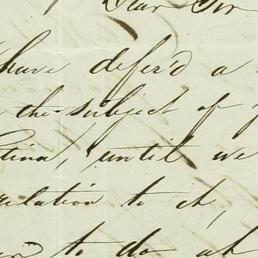 Dear Sir
have defer'd a
the subject of
until we
relation to it,
to do at